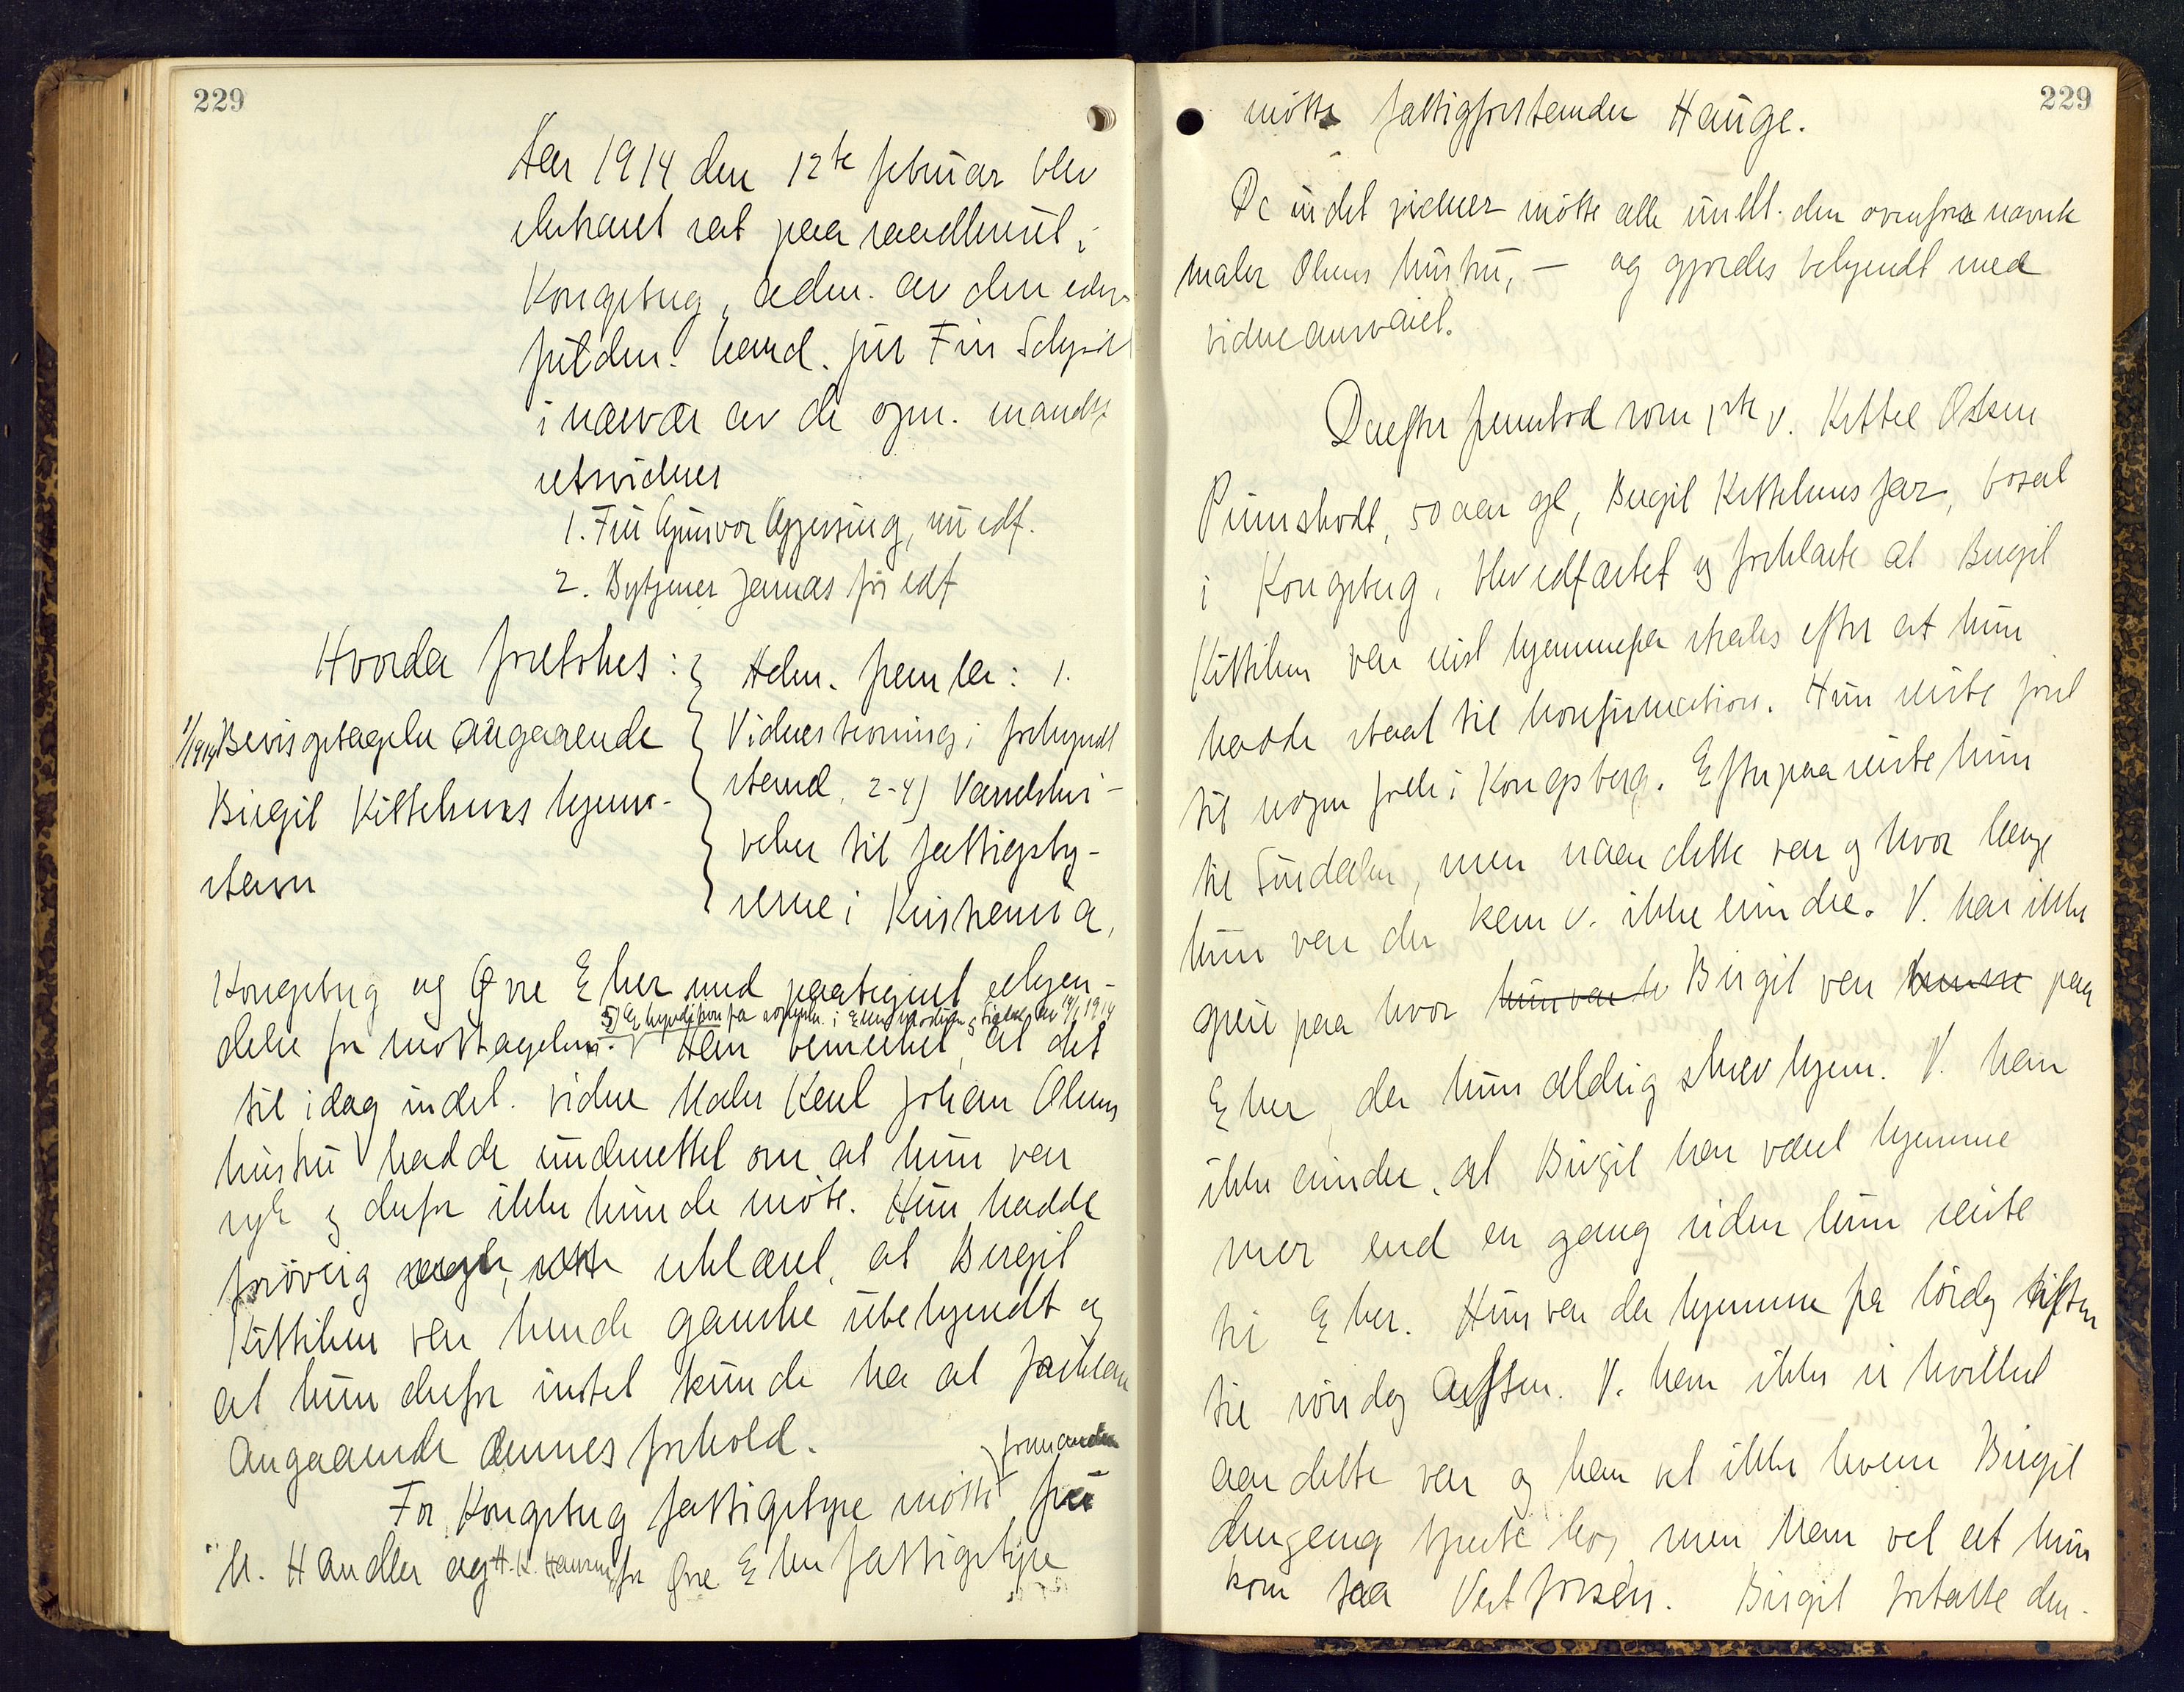 229
Aar 1914 den 12te februar blev
ekstraret sat paa raadhuset i
Kongsberg, adm. av den edsv.
fuldm. cand. jur Finn
i nærvær av de opn. mands
retsvidner
1. Fru Gunvor Oppersing, nu edf.
2. Jonnas før edf
Hvorda foretokes :
1/1914 Bevisoptagelse angaaende
Birgit Kittelsens hjem-
stavn
Adm. fremla: 1.
Vidnestevning i forkyndt
stand, 2-4) Varselskri-
velser til fattigsty-
rerne i Kristiania,
Kongsberg og Øvre Eker med paategnet erkjen-
delse for mottagelsen.
5) Ekspedition fra sorenskr. i Eker, Modum & Sigdal av 14/1 1914
Han bemerket, at det
til idag indst. vidne Maler Karl Johan Olsens
hustru hadde underrettet om at hun var
syk & derfor ikke kunde møte. Hun hadde
forøvrig erklæret, at Birgit
Kittilsen var hende ganske ubekjendt og
at hun derfor intet kunde ha at forklare
angaaende dennes forhold.
For Kongsberg fattigstyre møtte formanden fru
M. Handler og H. K. Hansen, for Øvre Eker fattigstyre
229
møtte fattigforstander Hauge.
De indst vidner møtte alle undt. den ovenfor nævnte
maler Olsens hustru, — og gjordes bekjendt med
vidneansvaret.
Derefter fremstod som 1ste v. Kittel Olsen
Pinnskodt, 50 aar gl, Birgit Kittelsens far, bosat
i Kongsberg, blev edfæstet og forklarte at Birgit
Kittilsen var reist hjemmefra straks efter at hun
hadde staat til konfirmation. Hun reiste først
til nogen folk i Kongsberg. Efterpaa reiste hun
til Sundalen, men naar dette var og hvor længe
hun var der kan v. ikke erindre. V. har ikke
greie paa hvor hun var de Birgit var hense paa
Eker, da hun aldrig skrev hjem. V. kan
ikke erindre, at Birgit har været hjemme
mer end en gang siden hun reiste
til Eker. Hun var da hjemme fra lørdag aften
til søndag aften. V. kan ikke si hvilket
aar dette var og kan vel ikke hvem Birgit
dengang tjente hos, men kan vel at hun
kom fra Vestfossen. Birgit fortalte den-